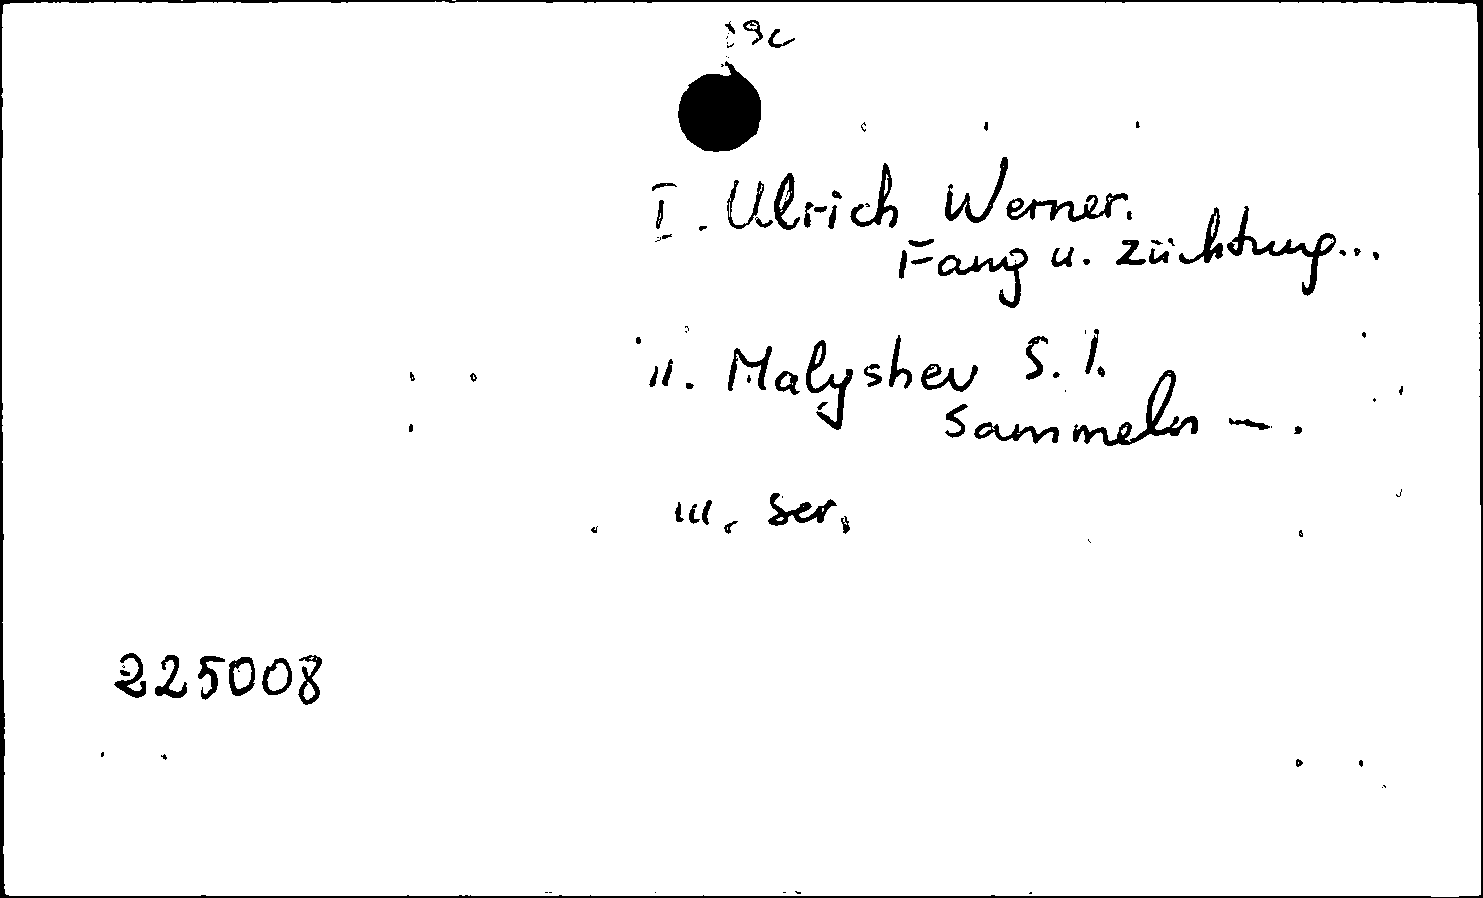 I. Ulrich Werner.
Fang u. Züchtung...
II. Malyshev S. I.
Sammeln — .
III. Ser.
225008